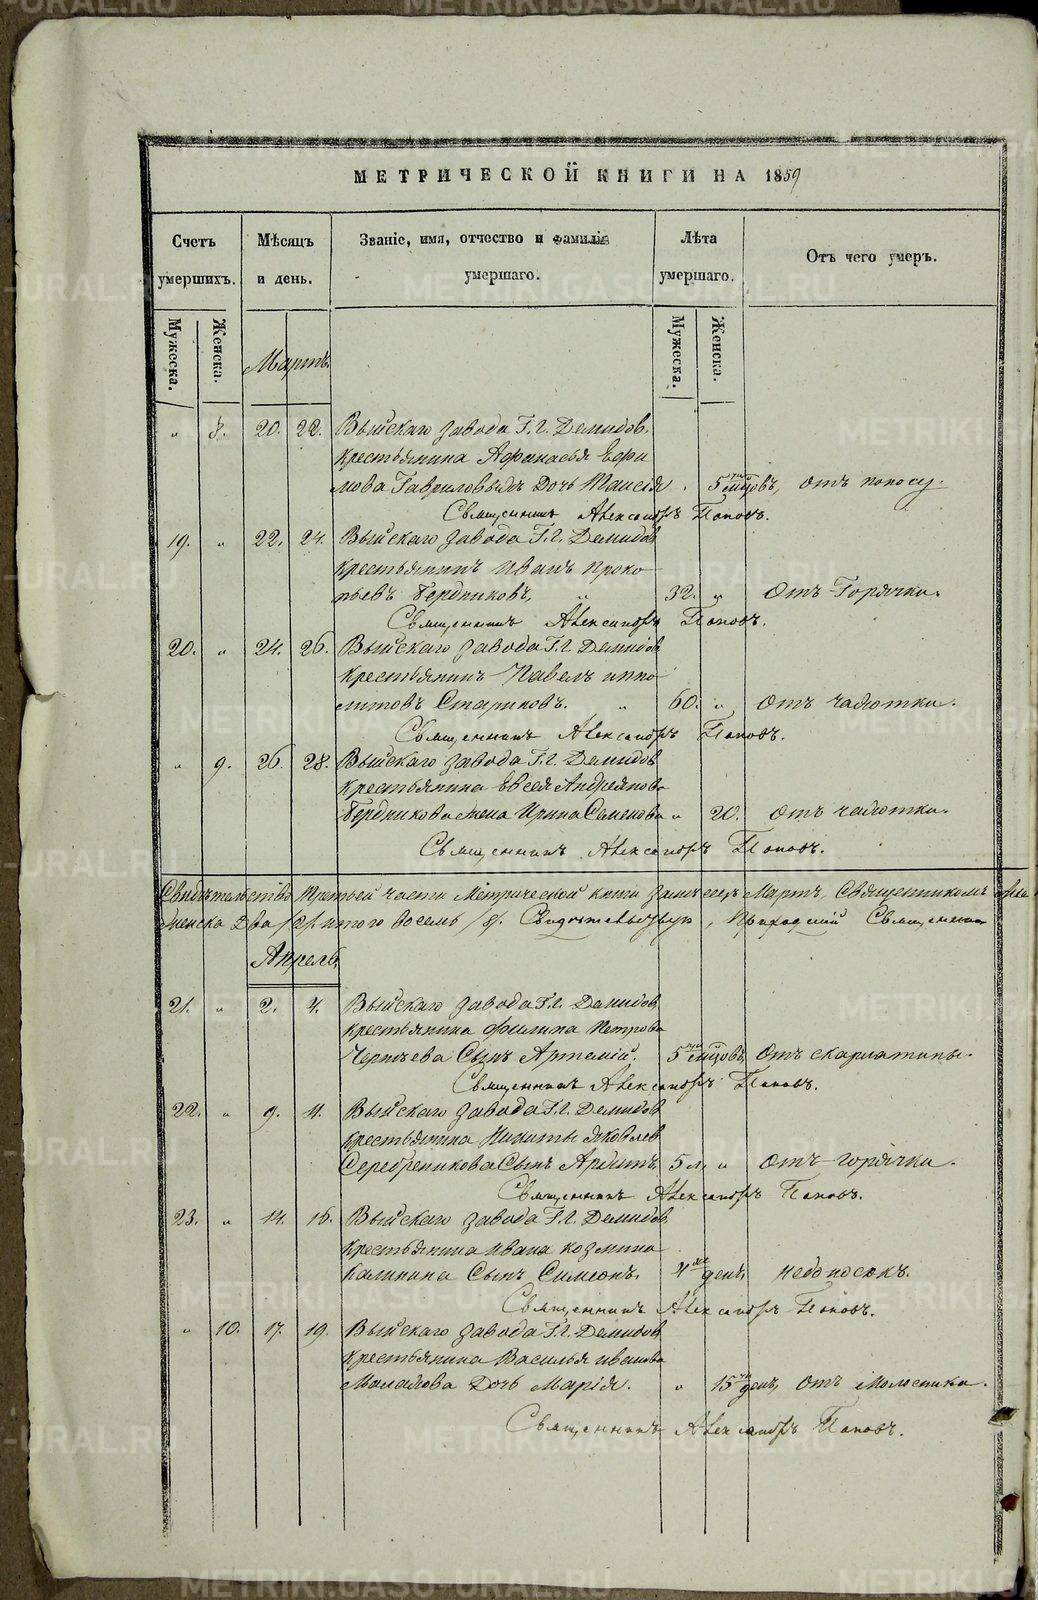 МЕТРИЧЕСКОЙ КНИГИ НА 1859
Счетъ умершихъ. Мѣсяцъ и день. Званіе, имя, отчество и фамилія умершаго. Лѣта умершаго. Отъ чего умеръ.
Мужеска. Женска. Мужеска. Женска.
Мартъ.
„ 8. 20. 22. Выйскаго завода Г.г. Демидов.
крестьянина Афанасья Ефи
мова Гавриловыхъ Дочь Таисія. 5ти мѣсцовъ, отъ поносу.
Священникъ Александръ Поповъ.
19. „ 22. 24. Выйскаго завода Г.г. Демидов
крестьянинъ Иванъ Проко
пьевъ Бердниковъ, „ 32. „ Отъ Горячки.
Священникъ Александръ Поповъ.
20. „ 24. 26. Выйскаго завода Г.г. Демидов
крестьянинъ Павелъ иппо
литовъ Стариковъ. „ 60. „ Отъ чахотки.
Священникъ Александръ Поповъ.
„ 9. 26. 28. Выйскаго завода Г.г. Демидов
крестьянина Евсея Андреянова
Бердникова жена Ирина Семенова „ 20. Отъ чахотки.
Священникъ Александръ Поповъ.
Свидѣтельство третьей части Метрической книги за мѣсяцъ Мартъ, Священникомъ
женска два /2/ итого восемь /8/. Свидетельствую, Приходский Священникъ
Апрель.
21. „ 2. 4. Выйскаго завода Г.г. Демидов
крестьянина Филипа Петрова
Сынъ Артемій. 5ти мѣсцовъ, Отъ скарлатины.
Священникъ Александръ Поповъ.
22. „ 9. 11. Выйскаго завода Г.г. Демидов
крестьянина Никиты Яковлев
Серебреникова Сынъ 5 л. „ Отъ горячки.
Священникъ Александръ Поповъ.
23. „ 14. 16. Выйскаго завода Г.г. Демидов
крестьянина ивана козмина
Калинина Сынъ Симеонъ. дней недоносокъ.
Священникъ Александръ Поповъ.
„ 10. 17. 19. Выйскаго завода Г.г. Демидов
крестьянина Василья иванова
Дочь Марія. „ 15ти ден, отъ Молосника.
Священникъ Александръ Поповъ.
METRIKI.GASO-URAL.RU